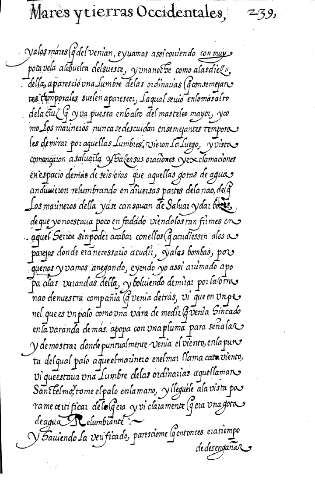 Mares y tierras Occidentales, 239,
y a los mares q̃ del venian, e yvamos assi corriendo con muy
pota vela a la buelta del sueste, y una noche como a las diez
della, aparescio una Lumbre de las ordinarias q̃ en semejan
tes temporales suelen aparescer, La qual se vio en lo mas alto
de la Cruz y va puesta en lo alto del mastel es mayor, y co
mo Los marineros nunca se descuidan en semejantes tempora
les de mirar por aquellas Lumbres, vieron la luego, y vista
començaron a salvalla y hazer sus oraciones y exclamaciones
en espacio de mas de seis oras que aquellas gotas de agua
anduvieron relumbrando en diversas partes de la nao, de q̃
Los marineros della ya se cansavan de Salvar y dar bozes,
de que yo no estava poco enfadado viendolos tan firmes en
aquel error sin poder acabar con ellos q̃ acudiessen a los a
parejos donde era necessario acudir, y a las bombas, por
que nos yvamos anegando, e yendo yo assi arrimado a po
pa a las varandas della, y bolviendo de mirar por la otra
nao de nuestra compañia q̃ venia detras, vi que en un pa
nel que es un palo como una vara de medir q̃ venia hincado
en la varanda de mar a popa con una pluma para señalar
y demostrar donde puntualmente venia el viento, en la pun
ta del qual palo a que el marinero en el mar llama cata viento,
vi que estava una Lumbre de las ordinarias a que llaman
Santelmo, tome el palo en la mano, y lleguele a la vista pa
ra me certificar de lo q̃ era y vi claramente q̃ era una gota
de agua Relumbrante
Y Haviendo La verificado, paresciome q̃ entonces era tiempo
de desengañar